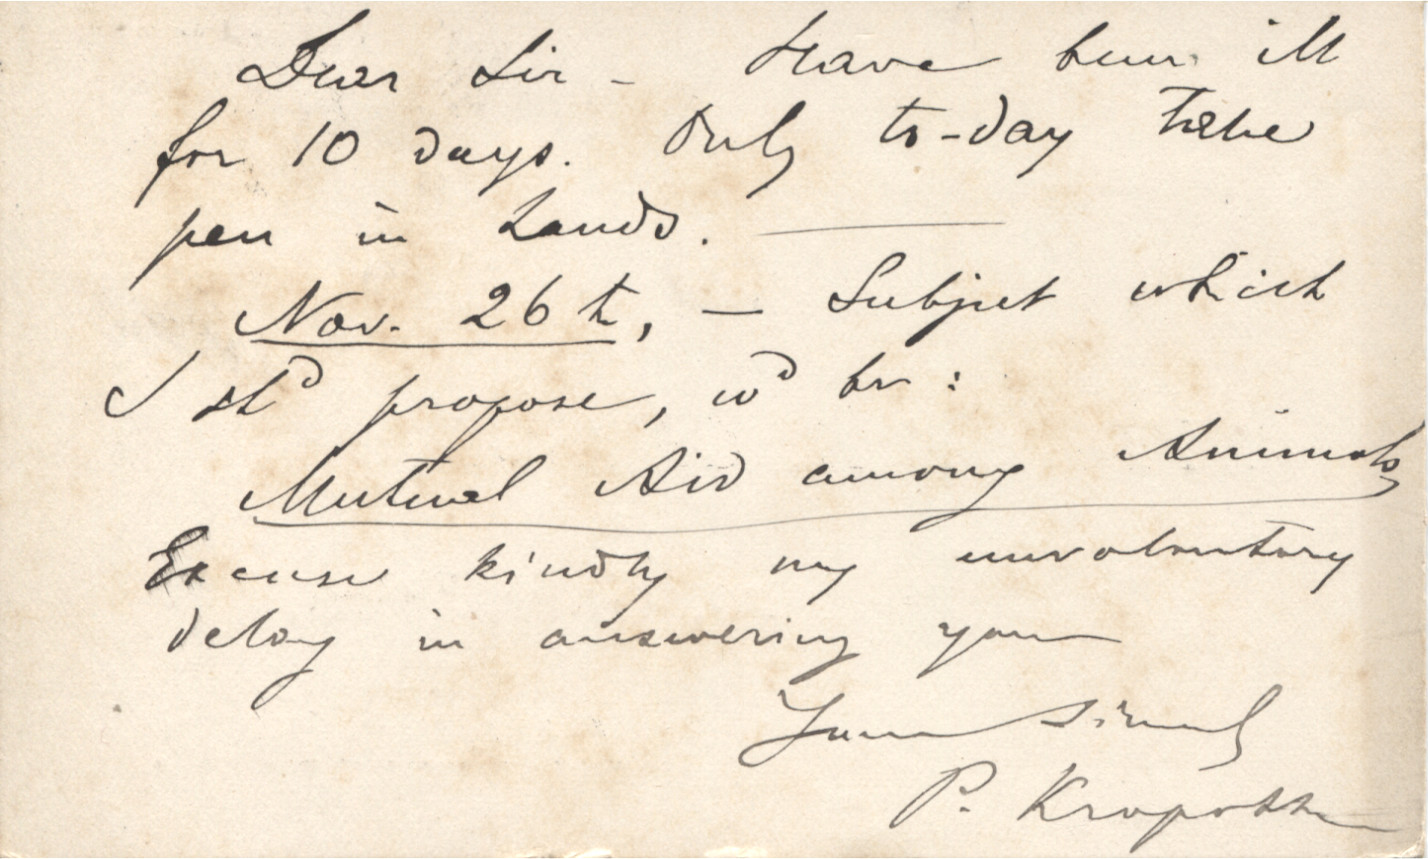 Dear Sir – Have been ill
for 10 days. Only to-day take
pen in hands. —
Nov. 26th, — Subject which
I shd propose, wd be :
Mutual Aid among Animals
Excuse kindly my unvoluntary
delay in answering you
Yours sincerely
P. Kropotkin